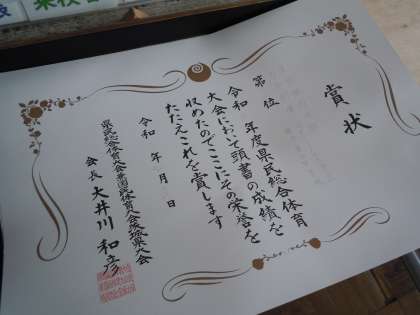 賞状
第　位
令和　年度県民総合体育
大会において頭書の成績を
収めたのでここにその栄誉を
たたえこれを賞します
令和　年　月　日
県民総合体育大会兼国民体育大会茨城県大会
会長　大井川　和彦